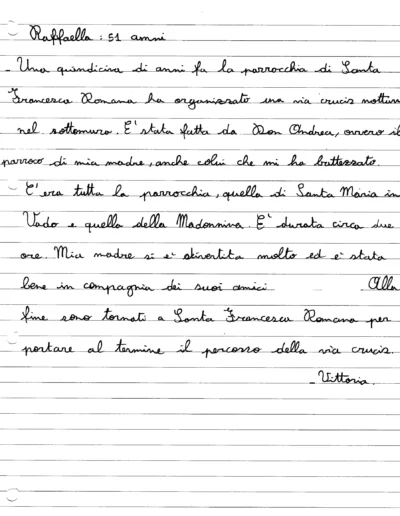 Raffaella : 51 anni
- Una quindicina di anni fa la parrocchia di Santa
Francesca Romana ha organizzato una via crucis nottur
nel sottomuro. E' stata fatta da Don Andrea, ovvero il
parroco di mia madre, anche colui che mi ha battezzato.
- C'era tutta la parrocchia, quella di Santa Maria in
Vado e quella della Madonnina. E' durata circa due
ore. Mia madre si è divertita molto ed è stata
bene in compagnia dei suoi amici Alla
fine sono tornati a Santa Francesca Romana per
portare al termine il percorso della via crucis.
- Vittoria.